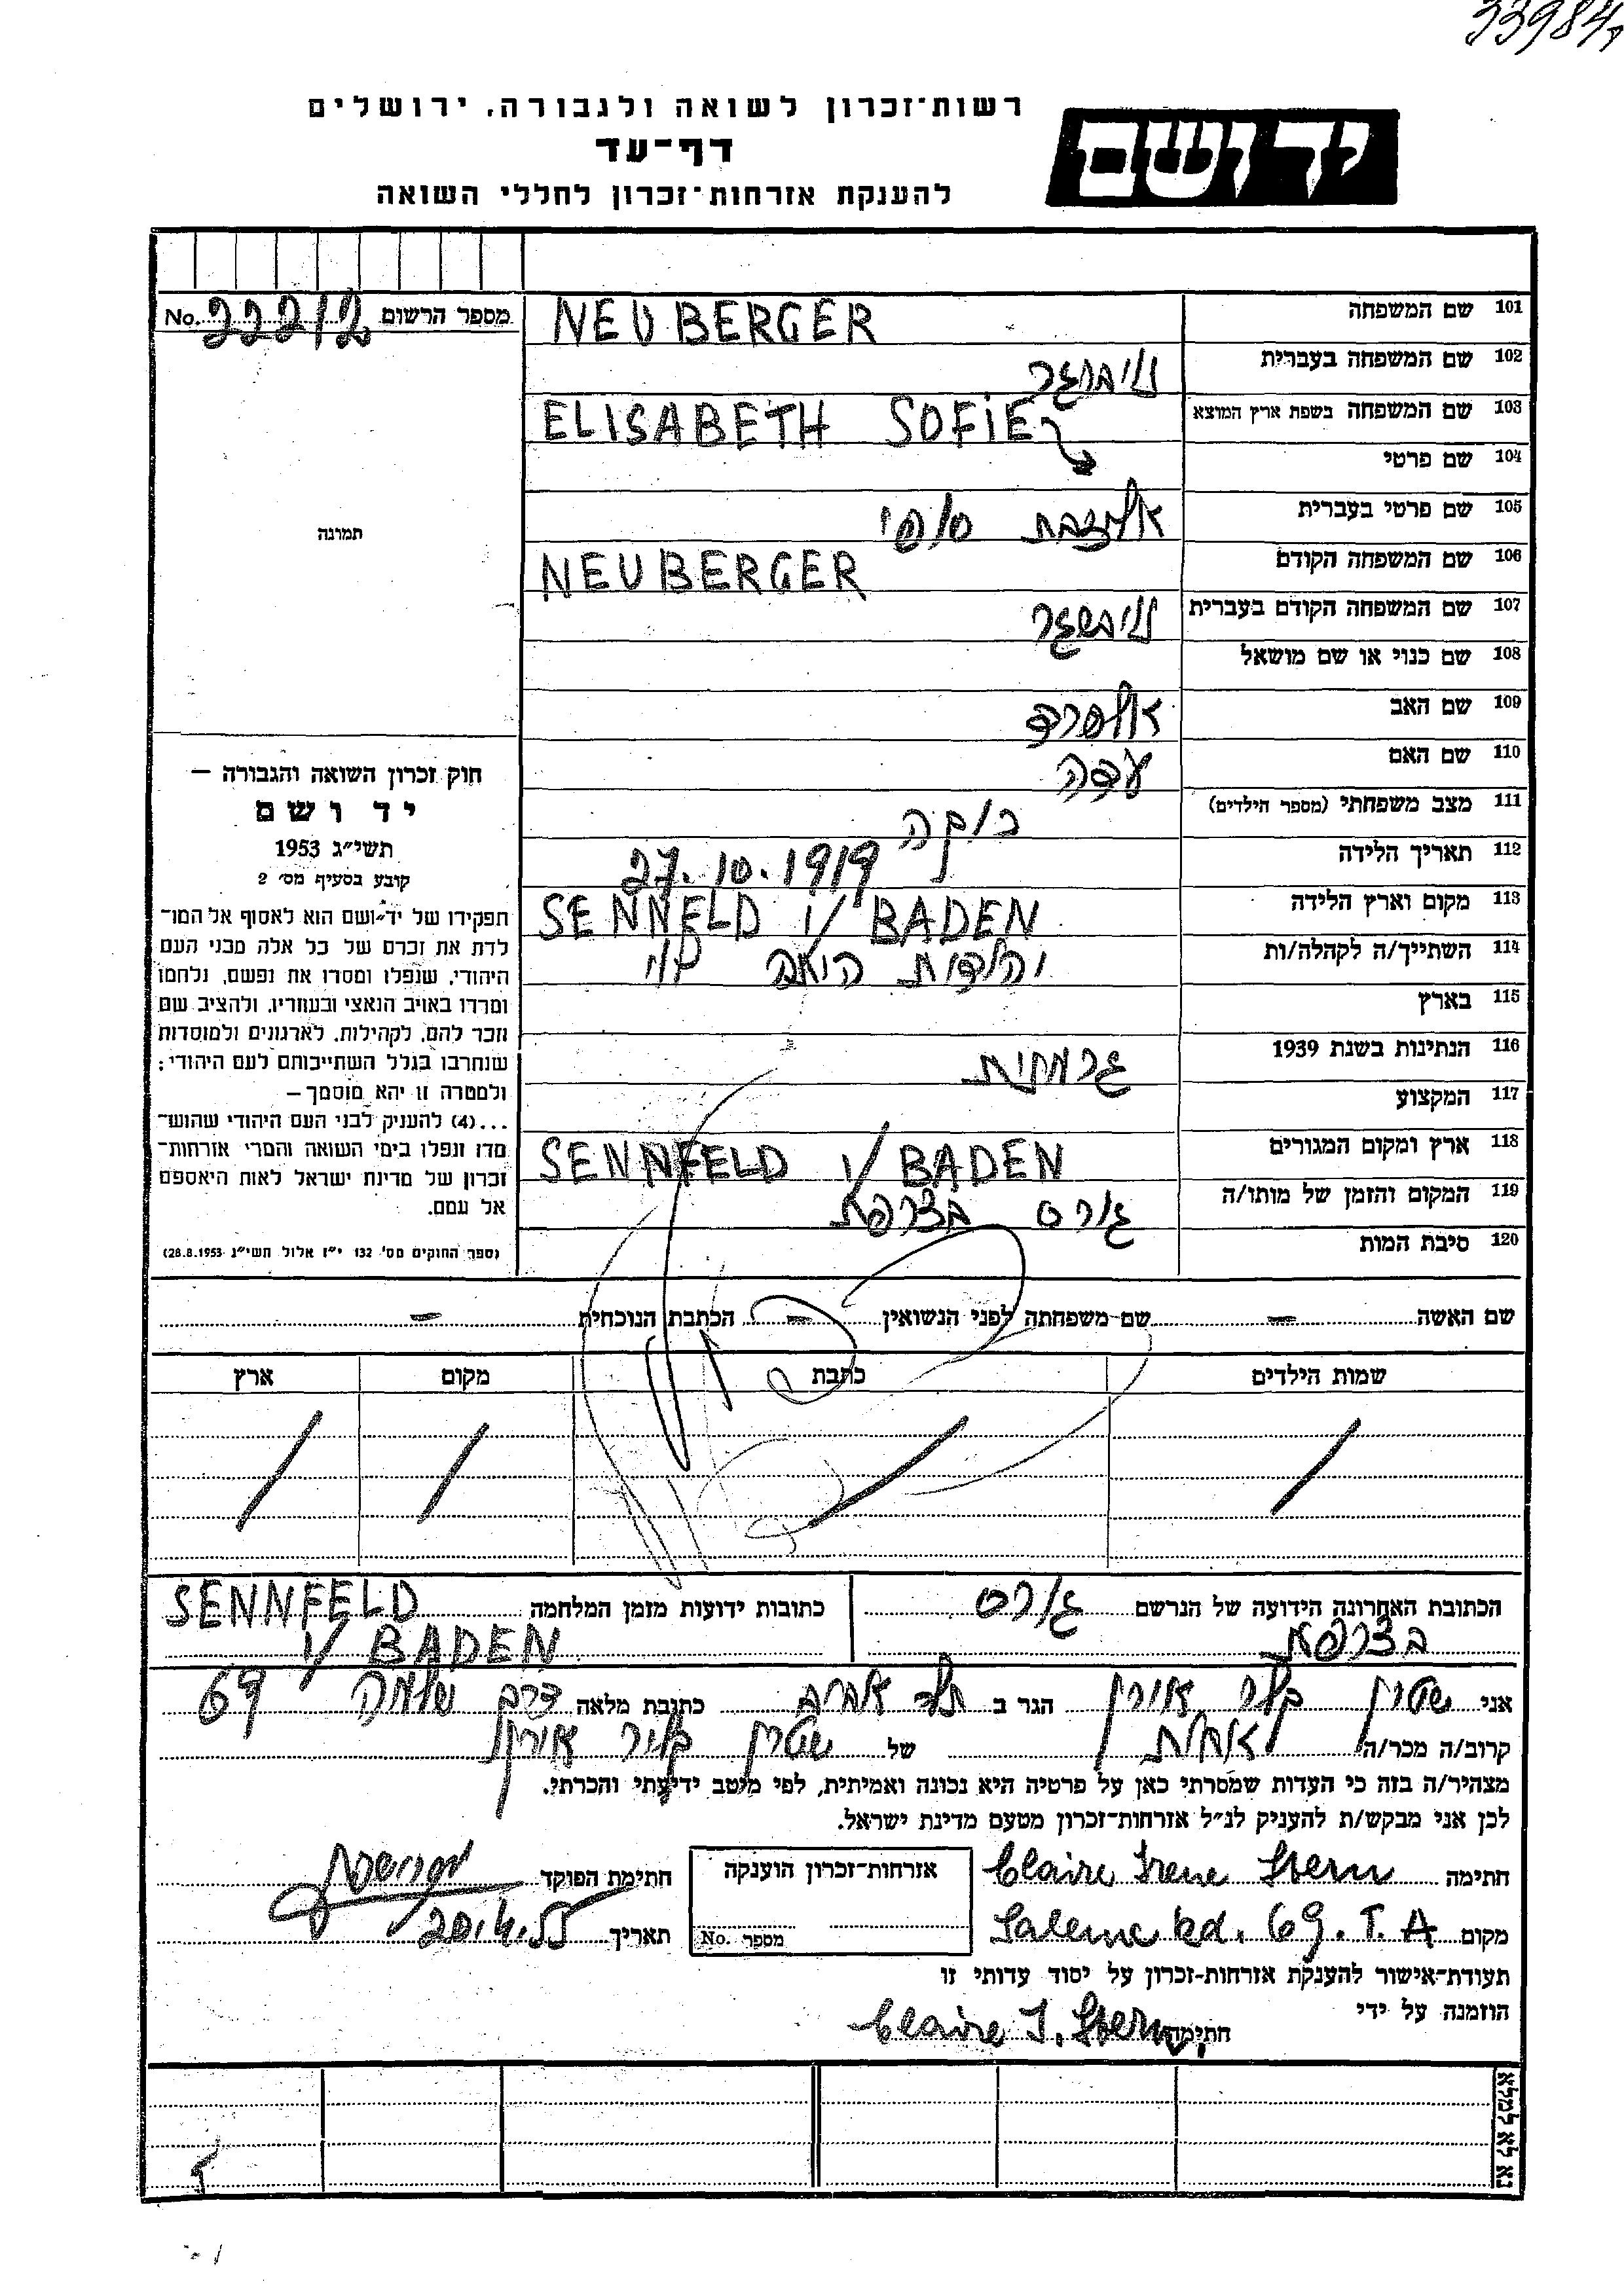 33984
רשות־זכרון לשואה ולגבורה, ירושלים
יד ושם
דף־עד
להענקת אזרחות־זכרון לחללי השואה
מספר הרשום No. 22212
תמונה
101 שם המשפחה NEUBERGER
102 שם המשפחה בעברית נויברגר
103 שם המשפחה בשפת ארץ המוצא ELISABETH SOFIE
104 שם פרטי
105 שם פרטי בעברית אליזבת סופי
106 שם המשפחה הקודם NEUBERGER
107 שם המשפחה הקודם בעברית נויברגר
108 שם כנוי או שם מושאל
109 שם האב אלפרד
110 שם האם עדה
111 מצב משפחתי (מספר הילדים) רוקה
112 תאריך הלידה 27.10.1919
113 מקום וארץ הלידה SENNFELD i/ BADEN
114 השתייך/ה לקהלה/ות
115 בארץ
116 הנתינות בשנת 1939 גרמנית
117 המקצוע
118 ארץ ומקום המגורים SENNFELD i/ BADEN
119 המקום והזמן של מותו/ה גורס בצרפת
120 סיבת המות
חוק זכרון השואה והגבורה —
יד ושם
תשי״ג 1953
קובע בסעיף מס׳ 2
תפקידו של יד־ושם הוא לאסוף אל המו־
לדת את זכרם של כל אלה מבני העם
היהודי, שנפלו ומסרו את נפשם, נלחמו
ומרדו באויב הנאצי ובעוזריו, ולהציב שם
וזכר להם, לקהילות, לארגונים ולמוסדות
שנחרבו בגלל השתייכותם לעם היהודי:
ולמטרה זו יהא מוסמך —
...(4) להעניק לבני העם היהודי שהוש־
מדו ונפלו בימי השואה והמרי אזרחות־
זכרון של מדינת ישראל לאות היאספם
אל עמם.
(ספר החוקים מס׳ 132 י״ז אלול תשי״ג 28.8.1953)
שם האשה — שם משפחתה לפני הנשואין — הכתבת הנוכחית —
שמות הילדים כתבת מקום ארץ
הכתובת האחרונה הידועה של הנרשם גורס
בצרפת
כתובות ידועות מזמן המלחמה SENNFELD
i/ BADEN
אני שטרן קלר אירן הגר ב תל אביב כתובת מלאה דרך שלמה 69
קרוב/ה מכר/ה אחות של שטרן קליר אירן
מצהיר/ה בזה כי העדות שמסרתי כאן על פרטיה היא נכונה ואמיתית, לפי מיטב ידיעתי והכרתי.
לכן אני מבקש/ת להעניק לנ״ל אזרחות־זכרון מטעם מדינת ישראל.
חתימה Claire Irene Stern
אזרחות־זכרון הוענקה
מספר No.
חתימת הפוקד
מקום Saleme Rd. 69. T.A
תאריך 20.4.55
תעודת־אישור להענקת אזרחות־זכרון על יסוד עדותי זו
הוזמנה על ידי
חתימה Claire I. Stern
נא לא למלא